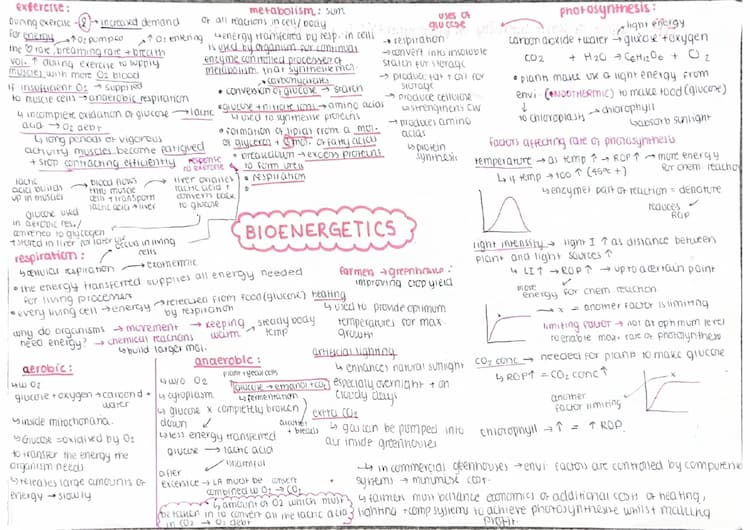 exercise:
During exercise → increased demand
for energy → O₂ pumped ↑ O₂ entering
the ♡ rate, breathing rate + breath
vol. ↑ during exercise to supply
muscles with more O₂ blood
if insufficient O₂ → supplied
to muscle cells → anaerobic respiration
↳ incomplete oxidation of glucose → lactic
acid → O₂ debt
↳ long periods of vigorous
activity muscles become fatigued
+ stop contracting efficiently
lactic
acid builds
up in muscles
→ blood flows
thru muscle
cells + transports
lactic acid → liver
→ liver oxidises
lactic acid +
converts back
to glucose
response
to exercise
glucose used
in aerobic res./
converted to glycogen
+ stored in liver for later use
metabolism: sum
of all reactions in cell/body
↳ energy transferred by resp. in cells
is used by organism for continual
enzyme controlled processes of
metabolism that synthesise mol.
carbohydrates
• conversion of glucose → starch
• glucose + nitrate ions → amino acids
↳ used to synthesise proteins
• formation of lipids from a mol.
of glycerol + 3 mol. of fatty acids
• breakdown → excess proteins
to form urea
• respiration
uses of
glucose
→ respiration
→ convert into insoluble
starch for storage
→ produce fat + oil for
storage
→ produce cellulose
↳ strengthens CW
→ produces amino
acids
↳ protein
synthesis
photosynthesis:
light energy
carbon dioxide + water → glucose + oxygen
CO2 + H2O → C6H12O6 + O2
• plants make use of light energy from
envi. (ENDOTHERMIC) to make food (glucose)
↳ chloroplasts → chlorophyll
↳ absorb sunlight
factors affecting rate of photosynthesis
temperature → as temp ↑ → ROP ↑ → more energy
for chem reaction
↳ if temp → too ↑ (45°c +)
↳ enzymes part of reaction = denature
reduces
ROP
light intensity → light I ↑ as distance between
plant and light sources ↑
↳ LI ↑ → ROP ↑ → up to a certain point
more
energy for chem reaction
→ x = another factor is limiting
limiting factor → not at optimum level
to enable max. rate of photosynthesis
CO₂ conc → needed for plants to make glucose
↳ ROP ↑ = CO₂ conc ↑
x
another
factor limiting
chlorophyll → ↑ = ↑ ROP
BIOENERGETICS
respiration:
occurs in living
cells
↳ cellular respiration → exothermic
• the energy transferred supplies all energy needed
for living processes
• every living cell → energy → released from food (glucose)
by respiration
why do organisms
need energy?
→ movement
→ chemical reactions
↳ build larger mol.
→ keeping
warm
→ steady body
temp
farmers → greenhouse:
improving crop yield
heating
↳ used to provide optimum
temperatures for max.
growth
artificial lighting
↳ enhances natural sunlight
especially overnight + on
cloudy days
extra CO₂
↳ gas can be pumped into
air inside greenhouses
aerobic:
↳ w O₂
glucose + oxygen → carbon d +
water
↳ inside mitochondria
↳ Glucose = oxidised by O₂
to transfer the energy the
organism needs
↳ releases large amounts of
energy → slowly
anaerobic:
↳ w/o O₂
↳ cytoplasm
↳ glucose x completely broken
down
plant + yeast cells
glucose → ethanol + CO₂
↳ fermentation
alcohol
+ bread
↳ less energy transferred
glucose → lactic acid
↳ harmful
after
exercise → LA must be
combined w O₂ → CO₂
↳ amount of O₂ which must
be taken in to convert all the lactic acid
in CO₂ → O₂ debt
↳ in commercial greenhouses → envi. factors are controlled by computer
systems → minimise cost
↳ farmer must balance economics of additional cost of heating,
lighting + comp systems to achieve photosynthesis whilst making
profit.